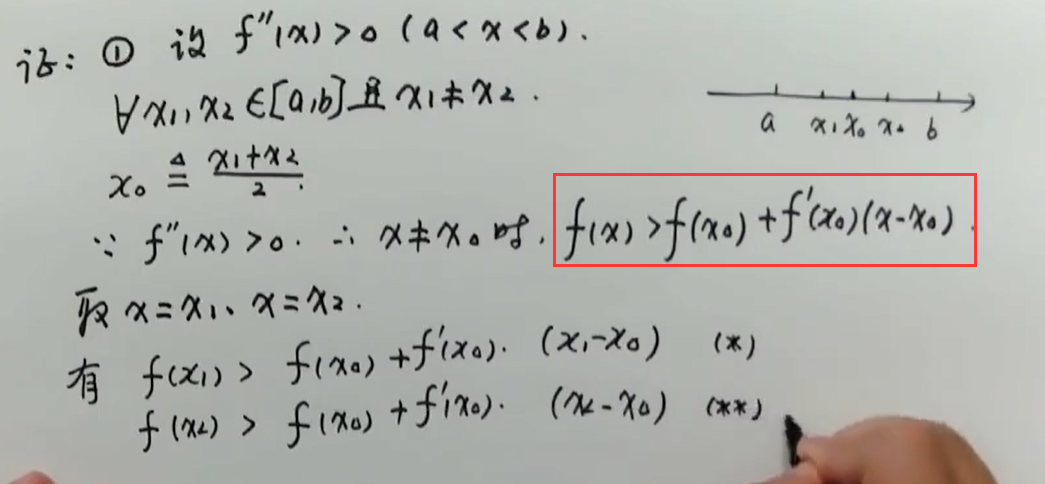 证: ① 设 f''(x)>0 (a<x<b).
∀x₁,x₂∈[a,b]且 x₁≠x₂.
a x₁ x₀ x₂ b
x₀ ≜ (x₁+x₂)/2.
∵ f''(x)>0. ∴ x≠x₀时, f(x)>f(x₀)+f'(x₀)(x-x₀).
取 x=x₁、x=x₂.
有 f(x₁) > f(x₀)+f'(x₀)·(x₁-x₀) (*)
f(x₂) > f(x₀)+f'(x₀)·(x₂-x₀) (**)